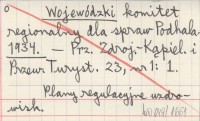 Wojewódzki komitet
regionalny dla spraw Podhala.
1934. — Prz. Zdroj.-Kąpiel. i
Przew. Turyst. 23, nr 1: 1.
Plany regulacyjne uzdro-
wisk.